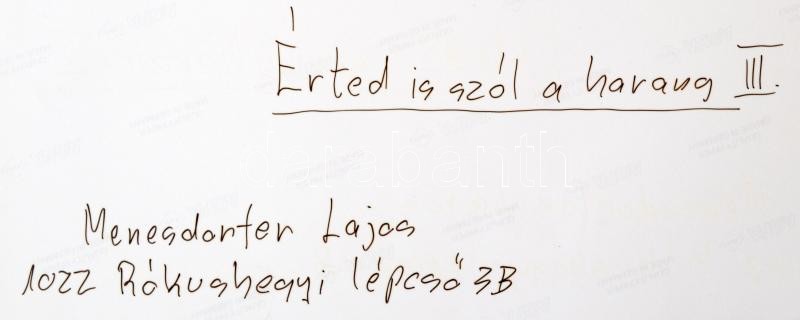 Érted is szól a harang III.
darabanth
Menesdorfer Lajos
1022 Rókushegyi lépcső 3B